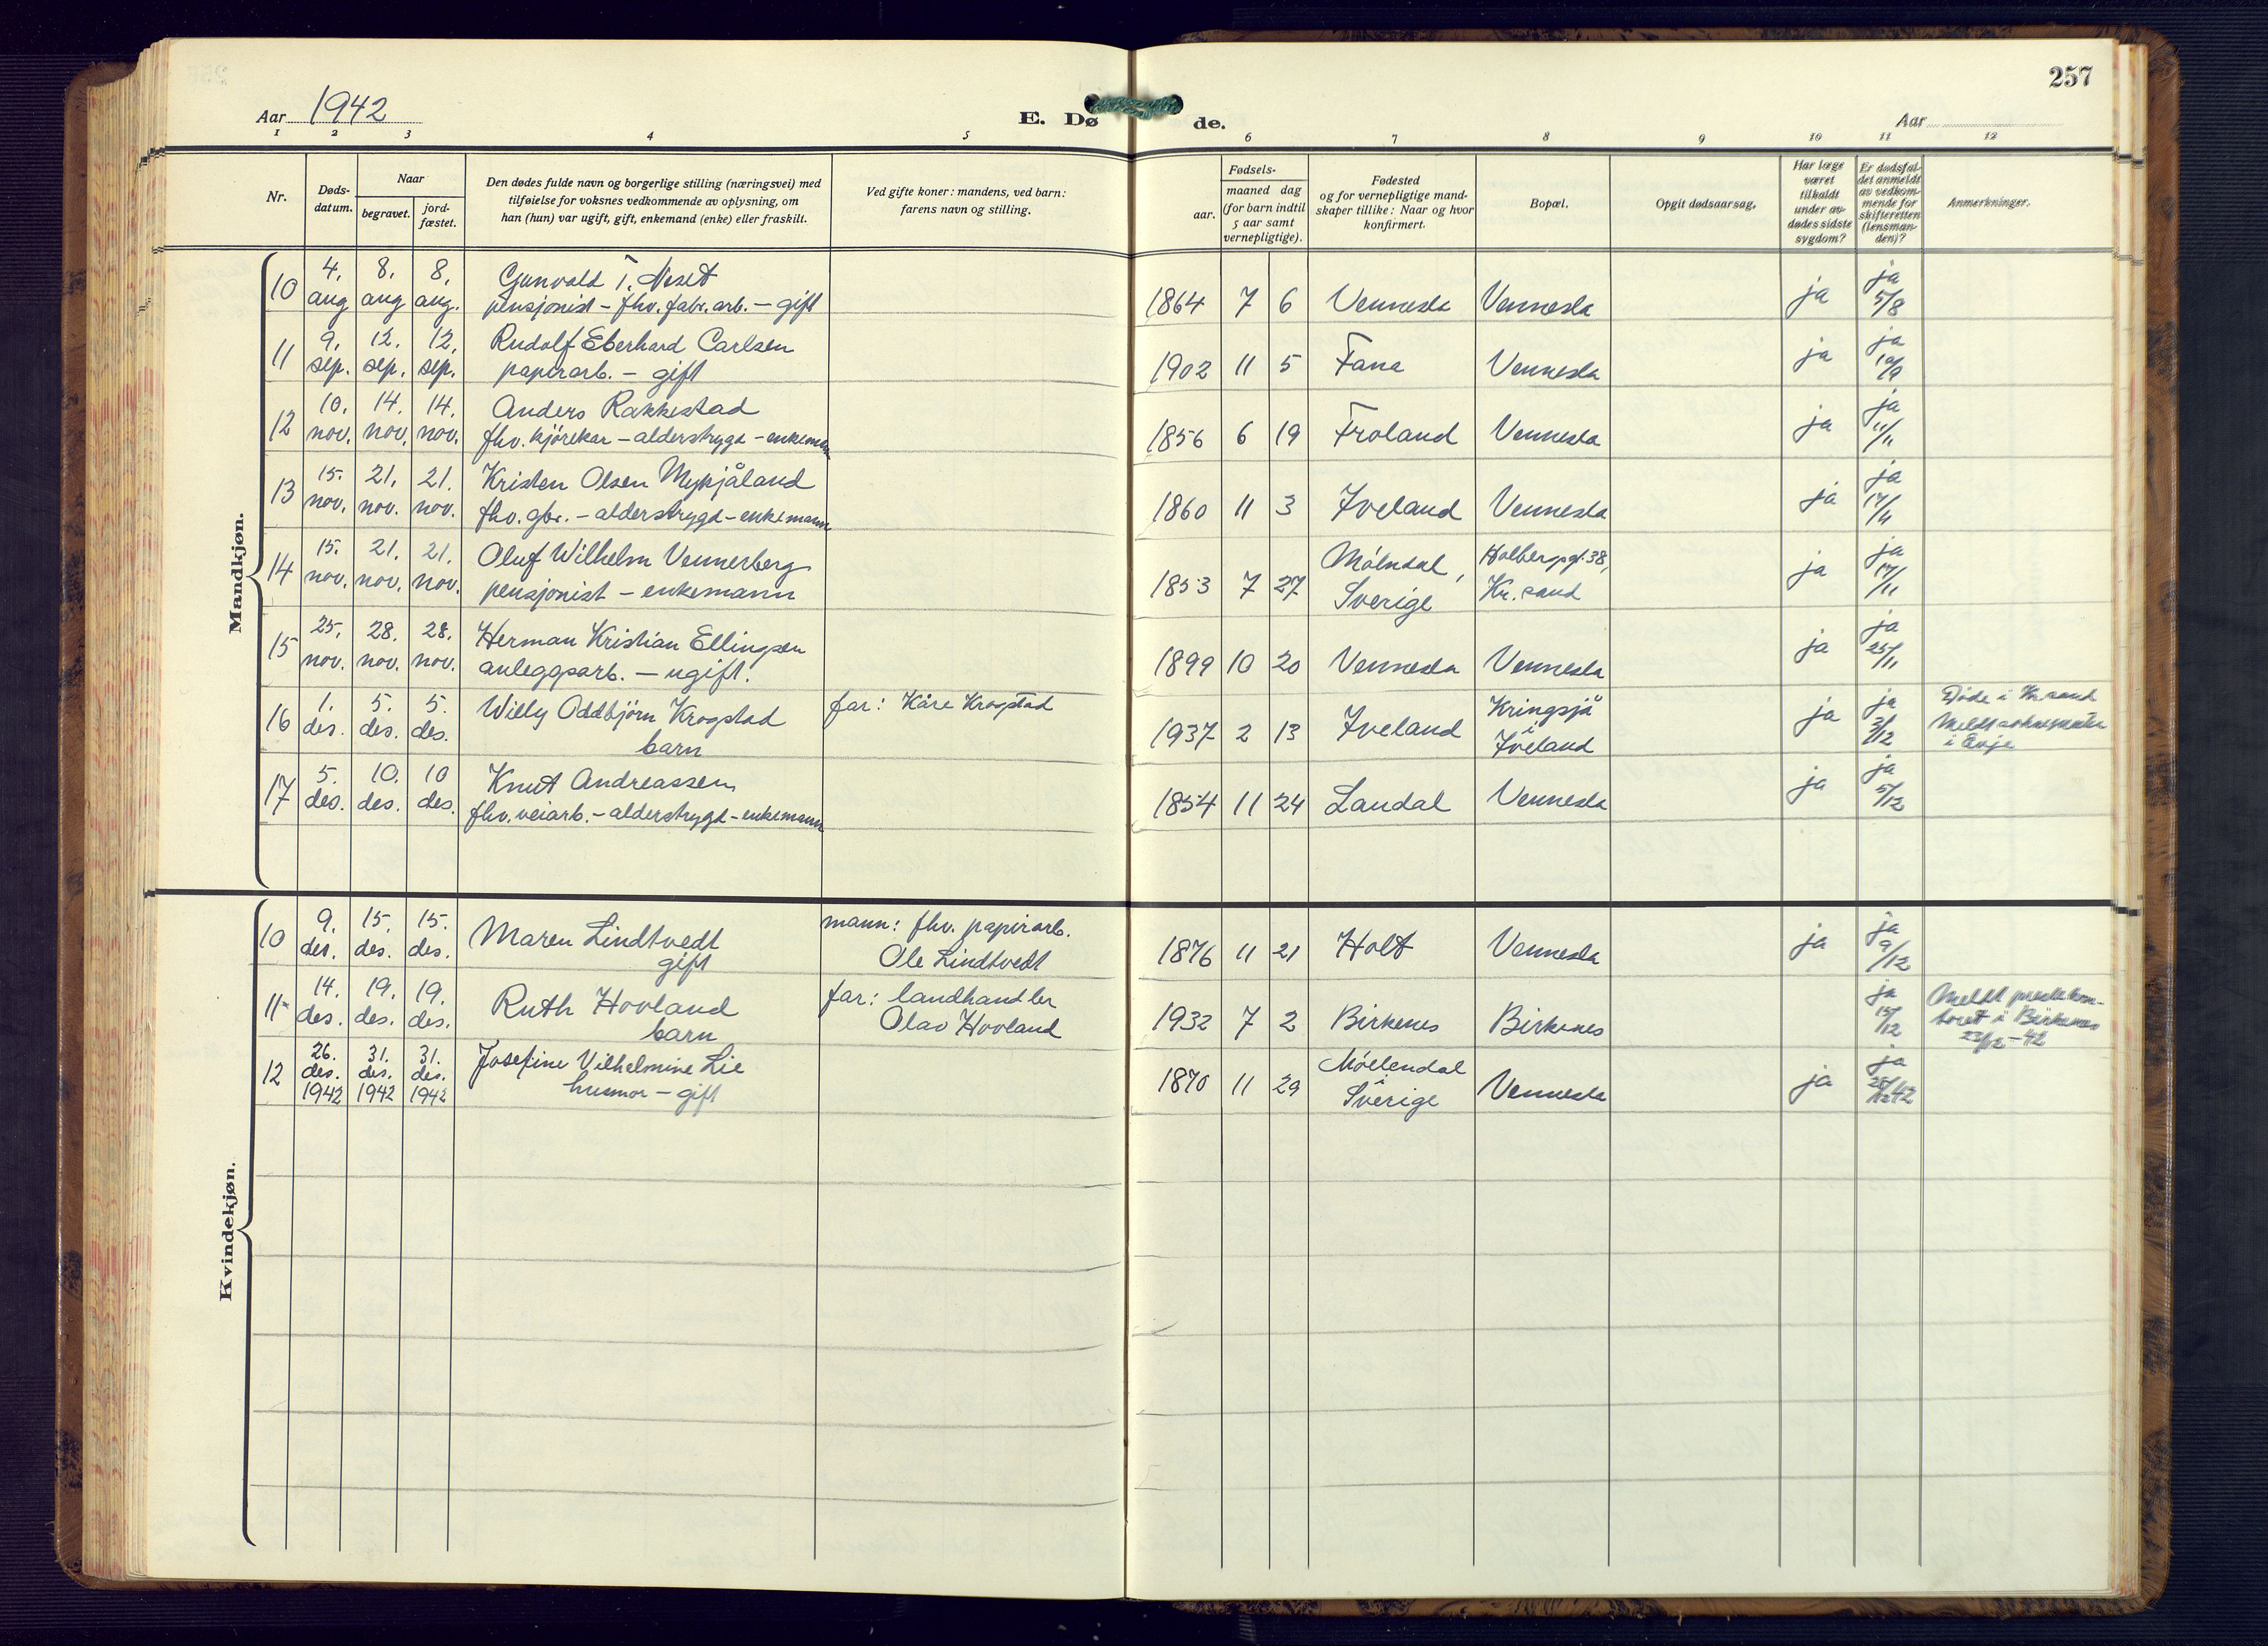 257
Aar 1942
E. Døde.
Aar
1 2 3 4 5 6 7 8 9 10 11 12
Nr.
Døds-
datum.
Naar
begravet.
jord-
fæstet.
Den dødes fulde navn og borgerlige stilling (næringsvei) med
tilføielse for voksnes vedkommende av oplysning, om
han (hun) var ugift, gift, enkemand (enke) eller fraskilt.
Ved gifte koner: mandens, ved barn:
farens navn og stilling.
Fødsels-
aar.
maaned dag
(for barn indtil
5 aar samt
vernepligtige).
Fødested
og for vernepligtige mand-
skaper tillike: Naar og hvor
konfirmert.
Bopæl.
Opgit dødsaarsag.
Har læge
været
tilkaldt
under av-
dødes sidste
sygdom?
Er dødsfal-
det anmeldt
av vedkom-
mende for
skifteretten
(lensman-
den)?
Anmerkninger.
Mandkjøn.
10 4. aug 8. aug 8. aug. Gunvald T. Neset
pensjonist - fhv. fabr. arb. - gift
1864 7 6 Vennesla Vennesla ja ja 5/8
11 9. sep. 12. sep. 12. sep. Rudolf Eberhard Carlsen
papirarb. - gift
1902 11 5 Fana Vennesla ja ja 10/9
12 10. nov. 14. nov. 14. nov. Anders Rakkestad
fhv. kjørekar - alderstrygd - enkemann
1856 6 19 Froland Vennesla ja ja 11/11
13 15. nov. 21. nov. 21. nov. Kristen Olsen Mykjåland
fhv. gbr. - alderstrygd - enkemann
1860 11 3 Iveland Vennesla ja ja 17/11
14 15. nov. 21. nov. 21. nov. Oluf Wilhelm Vennerberg
pensjonist - enkemann
1853 7 27 Mölndal, Sverige Holbergsgt. 38, Kr. sand ja ja 17/11
15 25. nov. 28. nov. 28. nov. Herman Kristian Ellingsen
anleggsarb. - ugift.
1899 10 20 Vennesla Vennesla ja ja 25/11
16 1. des. 5. des. 5. des. Willy Oddbjörn Krogstad
barn
far: Kåre Krogstad
1937 2 13 Iveland Kringsjå i Iveland ja ja 2/12 Døde i Kr.sand
Meldt
i Evje
17 5. des. 10. des. 10 des. Knut Andreassen
fhv. veiarb. - alderstrygd - enkemann
1854 11 24 Laudal Vennesla ja ja 5/12
Kvindekjøn.
10 9. des. 15. des. 15. des. Maren Lindtvedt
gift
mann: fhv. papirarb.
Ole Lindtvedt
1876 11 21 Holt Vennesla ja ja 9/12
11 14. des. 19. des. 19. des. Ruth Hovland
barn
far: landhandler
Olav Hovland
1932 7 2 Birkenes Birkenes ja 15/12 Meldt prestekon-
toret i Birkenes
23/12-42
12 26. des. 1942 31. des. 1942 31. des. 1942 Josefine Vilhelmine Lie
husmor - gift
1870 11 29 Möllendal i Sverige Vennesla ja ja 28/12 42